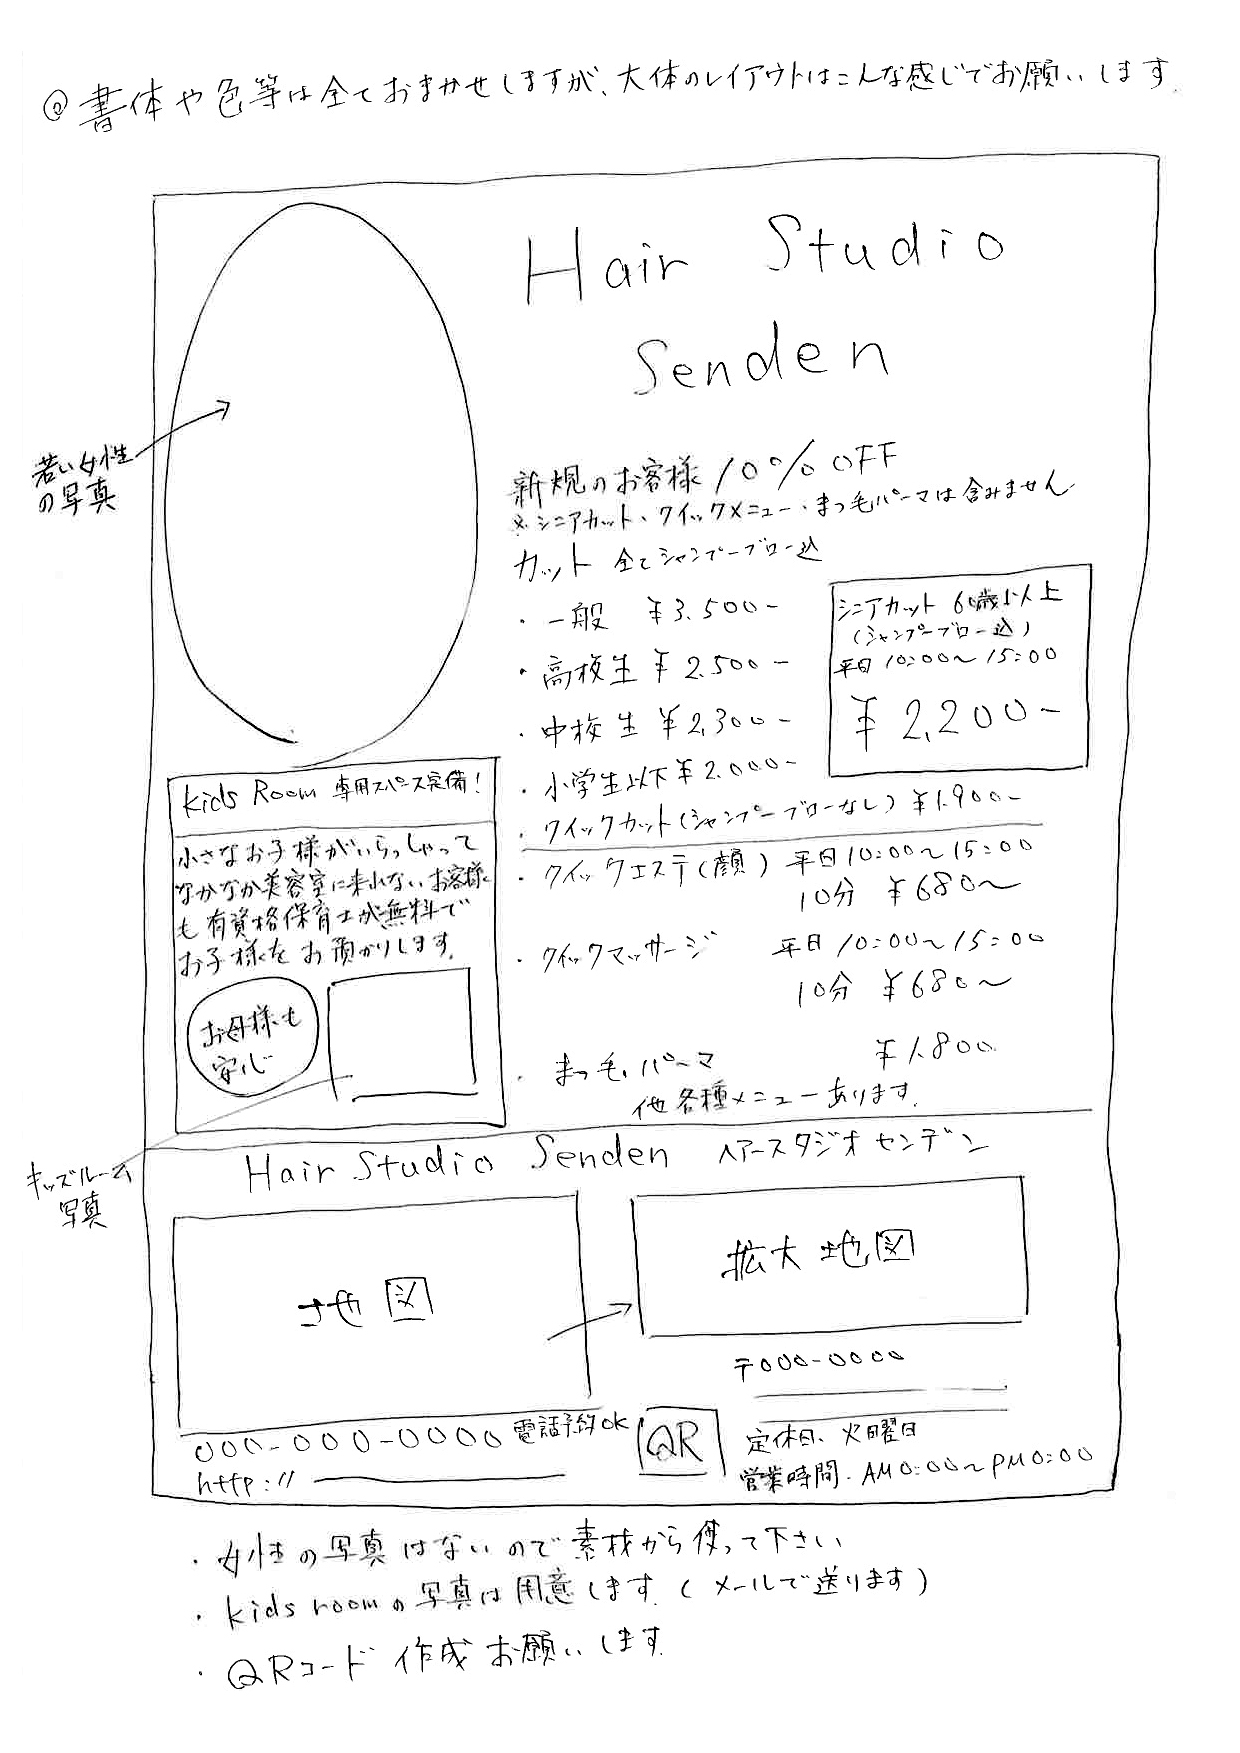 @書体や色等は全ておまかせしますが、大体のレイアウトはこんな感じでお願いします.
Hair Studio
Senden
若い女性
の写真
新規のお客様 10%OFF
※シニアカット、クイックメニュー・まつ毛パーマは含みません
カット 全てシャンプーブロー込
・一般 ¥3.500-
・高校生 ¥2.500-
・中校生 ¥2,300-
・小学生以下 ¥2.000-
・クイックカット(シャンプーブローなし) ¥1.900-
シニアカット 60歳以上
(シャンプーブロー込)
平日 10:00〜15:00
¥2,200-
・クイックエステ(顔) 平日10:00〜15:00
10分 ¥680〜
・クイックマッサージ 平日 10:00〜15:00
10分 ¥680〜
・まつ毛パーマ ¥1.800
他各種メニューあります.
Kids Room 専用スペース完備!
小さなお子様がいらっしゃって
なかなか美容室に来れないお客様
も有資格保育士が無料で
お子様をお預かりします.
お母様も
安心
キッズルーム
写真
Hair Studio Senden ヘアースタジオ センデン
地図
拡大地図
〒000-0000
000-000-0000 電話予約OK
http://
QR
定休日、火曜日
営業時間・AM0:00〜PM0:00
・女性の写真はないので素材から使って下さい
・kids roomの写真は用意します.(メールで送ります)
・QRコード作成お願いします.